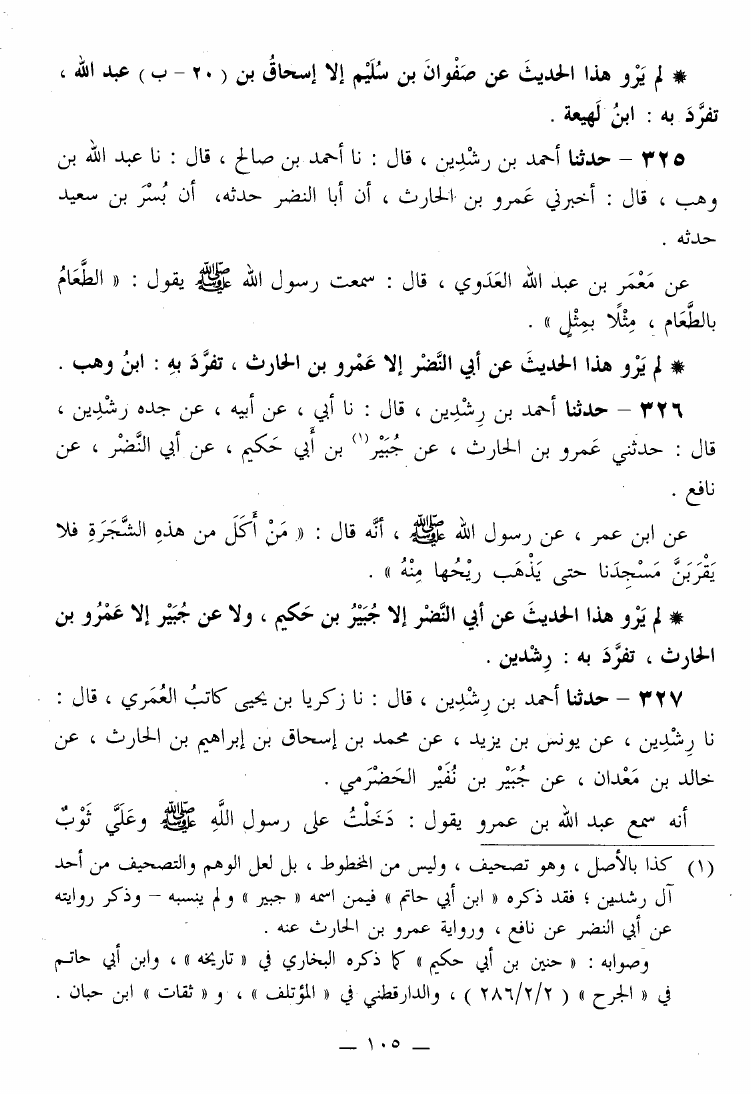 * لم يَرْوِ هذا الحديثَ عن صَفْوانَ بن سُلَيْم إلا إسحاقُ بن ( ٢٠ - ب ) عبد الله ،
تفرَّدَ به : ابنُ لَهيعة .
٣٢٥ - حدثنا أحمد بن رشْدِين ، قال : نا أحمد بن صالح ، قال : نا عبد الله بن
وهب ، قال : أخبرني عَمرو بن الحارث ، أن أبا النضر حدثه، أن بُسْرَ بن سعيد
حدثه .
عن مَعْمَر بن عبد الله العَدَوي ، قال : سمعت رسول الله ﷺ يقول : « الطَّعَامُ
بالطَّعَام ، مِثْلًا بمِثْلٍ » .
* لم يَرْوِ هذا الحديثَ عن أبي النَّضْر إلا عَمْرو بن الحارث ، تفرَّدَ بهِ : ابنُ وهب .
٣٢٦ - حدثنا أحمد بن رِشدين ، قال : نا أبي ، عن أبيه ، عن جده رشْدِين ،
قال : حدثني عَمرو بن الحارث ، عن جُبَيْر(١) بن أَبي حَكيم ، عن أبي النَّضْر ، عن
نافع .
عن ابن عمر ، عن رسول الله ﷺ ، أنَّه قال : « مَنْ أَكَلَ من هذهِ الشَّجَرَةِ فلا
يَقْرَبَنَّ مَسْجِدَنا حتى يَذْهَب رِيْحُها مِنْهُ » .
* لم يَرْوِ هذا الحديثَ عن أبي النَّضْر إلا جُبَيْرُ بن حَكيم ، ولا عن جُبَيْر إلا عَمْرُو بن
الحارث ، تفرَّدَ به : رِشْدين .
٣٢٧ - حدثنا أحمد بن رِشْدِين ، قال : نا زكريا بن يحيى كاتبُ العُمَري ، قال :
نا رِشْدِين ، عن يونس بن يزيد ، عن محمد بن إسحاق بن إبراهيم بن الحارث ، عن
خالد بن مَعْدان ، عن جُبَيْر بن نُفَيْر الحَضْرَمي .
أنه سمع عبد الله بن عمرو يقول : دَخَلْتُ على رسول اللَّهِ ﷺ وعَلَيَّ ثَوْبٌ
(١) كذا بالأصل ، وهو تصحيف ، وليس من المخطوط ، بل لعل الوهم والتصحيف من أحد
آل رشدين ؛ فقد ذكره « ابن أبي حاتم » فيمن اسمه « جبير » ولم ينسبه - وذكر روايته
عن أبي النضر عن نافع ، ورواية عمرو بن الحارث عنه .
وصوابه : « حنين بن أبي حكيم » كما ذكره البخاري في « تاريخه » ، وابن أبي حاتم
في « الجرح » ( ٢٨٦/٢/٢ ) ، والدارقطني في « المؤتلف » ، و « ثقات » ابن حبان .
— ١٠٥ —